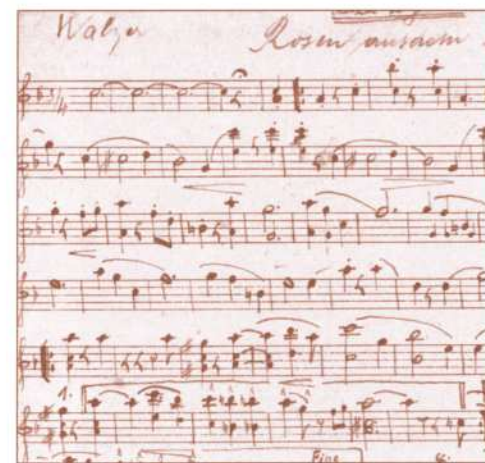 Walzer Rosen aus dem
3/4
1.
Fine